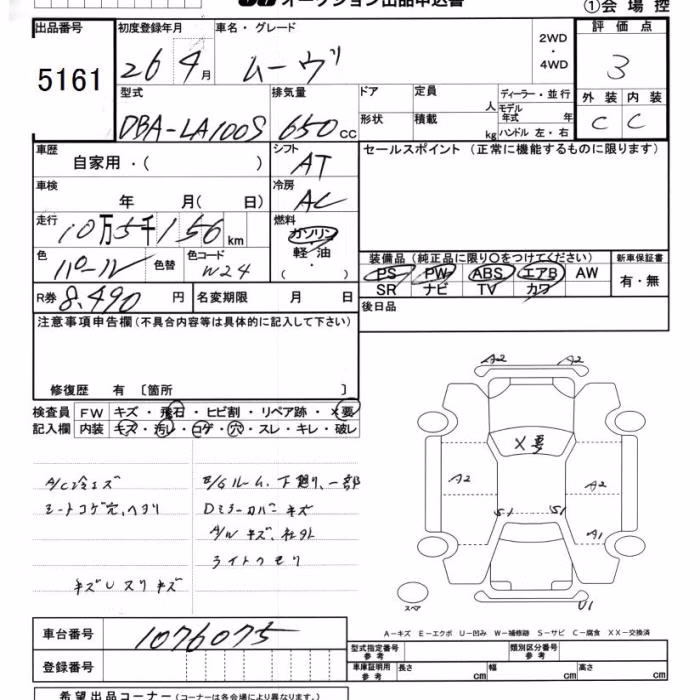 オークション出品申込書 ①会場控
出品番号 初度登録年月 車名・グレード 2WD・4WD 評価点
5161 26 4月 ムーヴ 3
型式 排気量 ドア 定員 人 ディーラー・並行 外装 内装
DBA-LA100S 650cc 形状 積載 kg モデル年式 年 ハンドル 左・右 C C
車歴 シフト セールスポイント(正常に機能するものに限ります)
自家用・( ) AT
車検 冷房
年 月( 日) AC
走行 燃料
10万5千156km ガソリン
色 色替 色コード 軽油 装備品(純正品に限り○をつけてください) 新車保証書
パール W24 ・( ) PS PW ABS エアB AW 有・無
SR ナビ TV カワ
R券 8,490円 名変期限 月 日 後日品
注意事項申告欄(不具合内容等は具体的に記入して下さい)
修復歴 有〔箇所 〕
検査員 FW キズ・飛石・ヒビ割・リペア跡・×要
記入欄 内装 キズ・汚レ・コゲ・穴・スレ・キレ・破レ
A/C冷エズ
シートコゲ穴、ヘタリ
キズUスリキズ
E/Gルーム、下廻り、一部
Dミラーカバーキズ
A/Wキズ、社外
ライトクモリ
A2 A2
X要
A2 A2
S1 S1
A1
スペア U1
A-キズ E-エクボ U-凹み W-補修跡 S-サビ C-腐食 XX-交換済
車台番号 1076075
登録番号
型式指定番号 参考 類別区分番号 参考
車庫証明用 参考 長さ cm 幅 cm 高さ cm
希望出品コーナー(コーナーは各会場により異なります。)